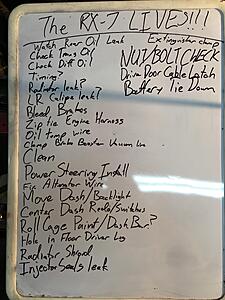 The RX-7 LIVES!!!!
Watch Rear Oil Leak
Check Trans Oil
Check Diff Oil
Timing?
Radiator leak?
LR Calipe leak?
Bleed Brakes
Zip tie Engine Harness
Oil temp wire
Clamp Brake Booster Vacuum Line
Clean
Power Steering Install
Fix Alternator Wire
Move Dash/Backlight
Center Dash Radio/Switches
Roll Cage Paint/Dash Bar?
Hole in Floor Driver Leg
Radiator Shroud
Injector Seals leak
Extinguisher clamp
NUT/BOLT CHECK
Drive Door Cable Latch
Battery Tie Down